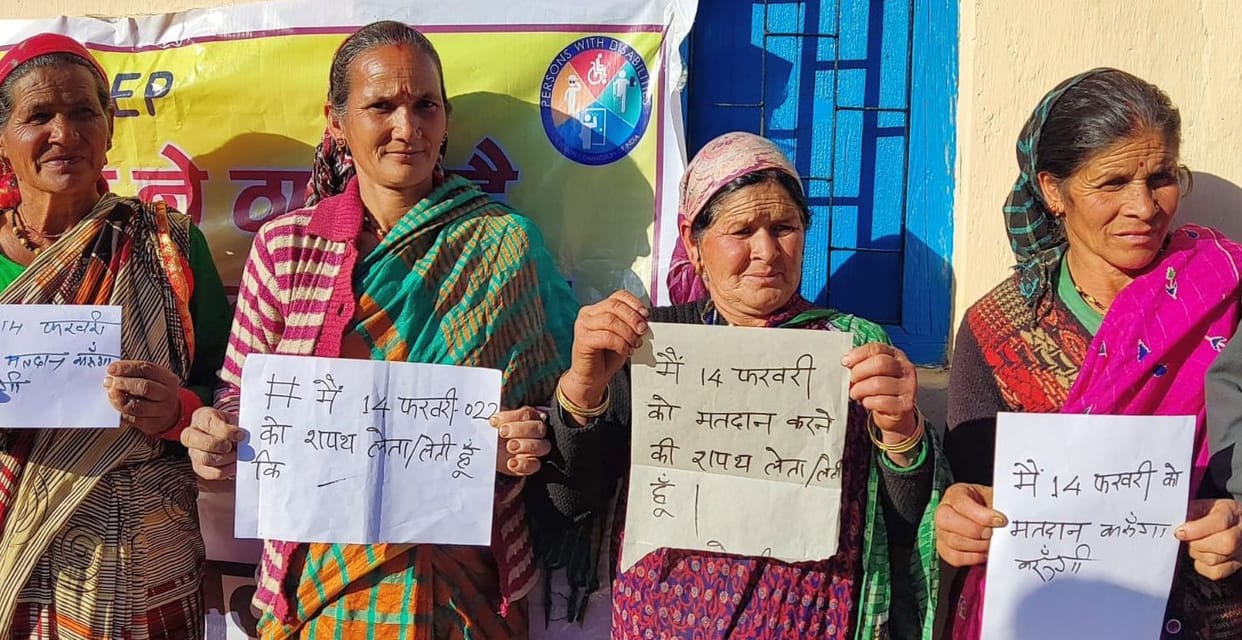 EEP
ने
है
PERSONS WITH DISABILITIES
14 फरवरी
मतदान करूँगा
# मैं 14 फरवरी-022
को शपथ लेता/लेती हूँ
कि
मैं 14 फरवरी
को मतदान करने
की शपथ लेता/लेती
हूँ।
मैं 14 फरवरी को
मतदान करूँगा
करूँगी